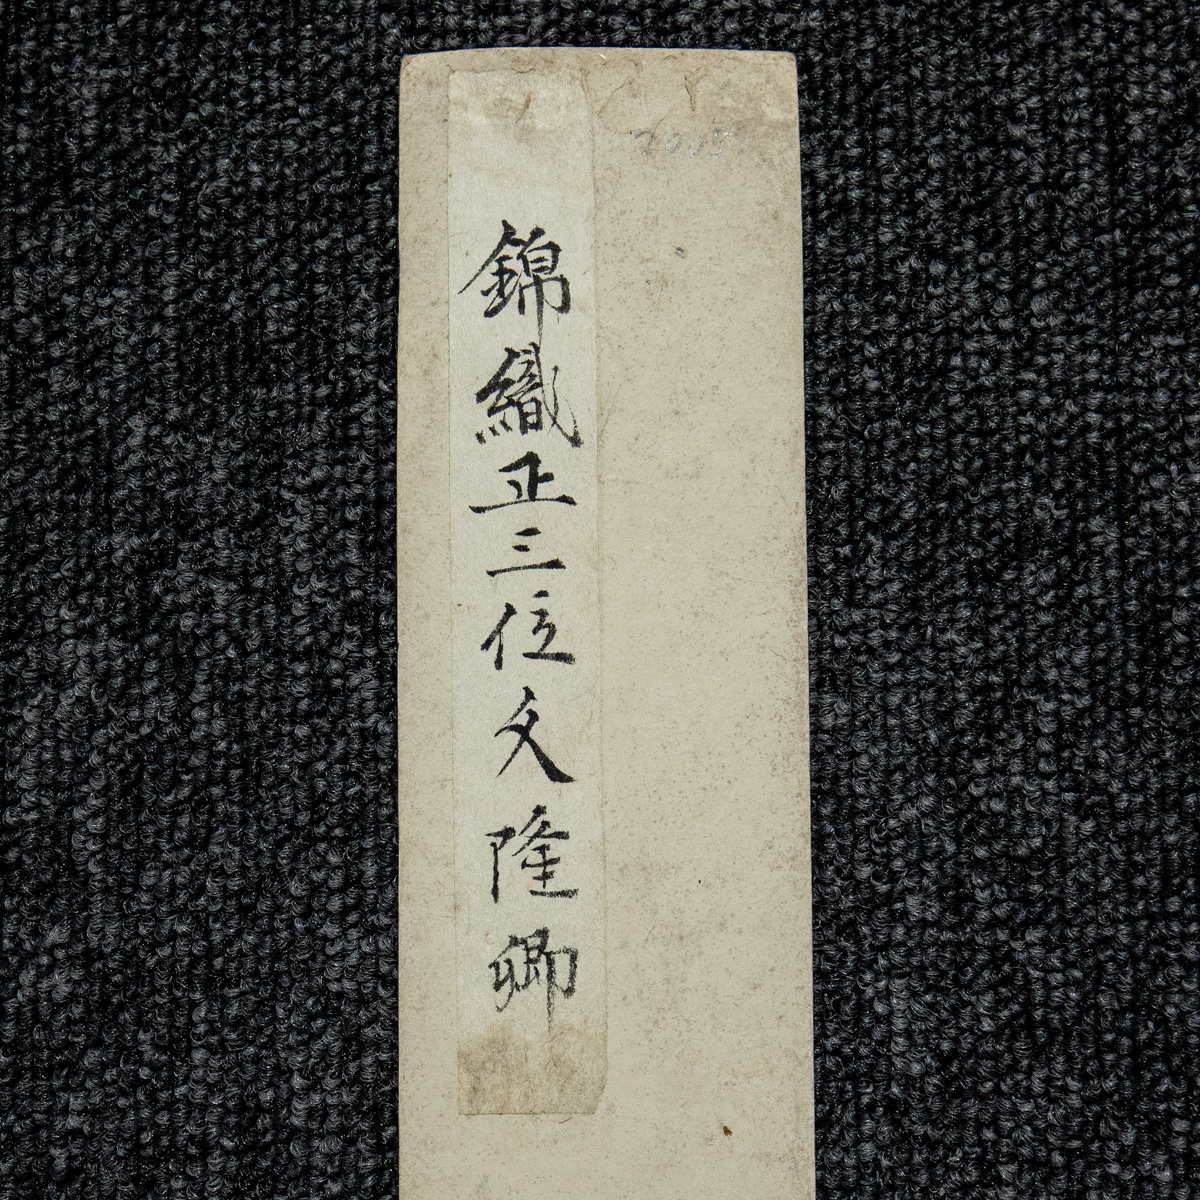 錦織正三位久隆卿
2005